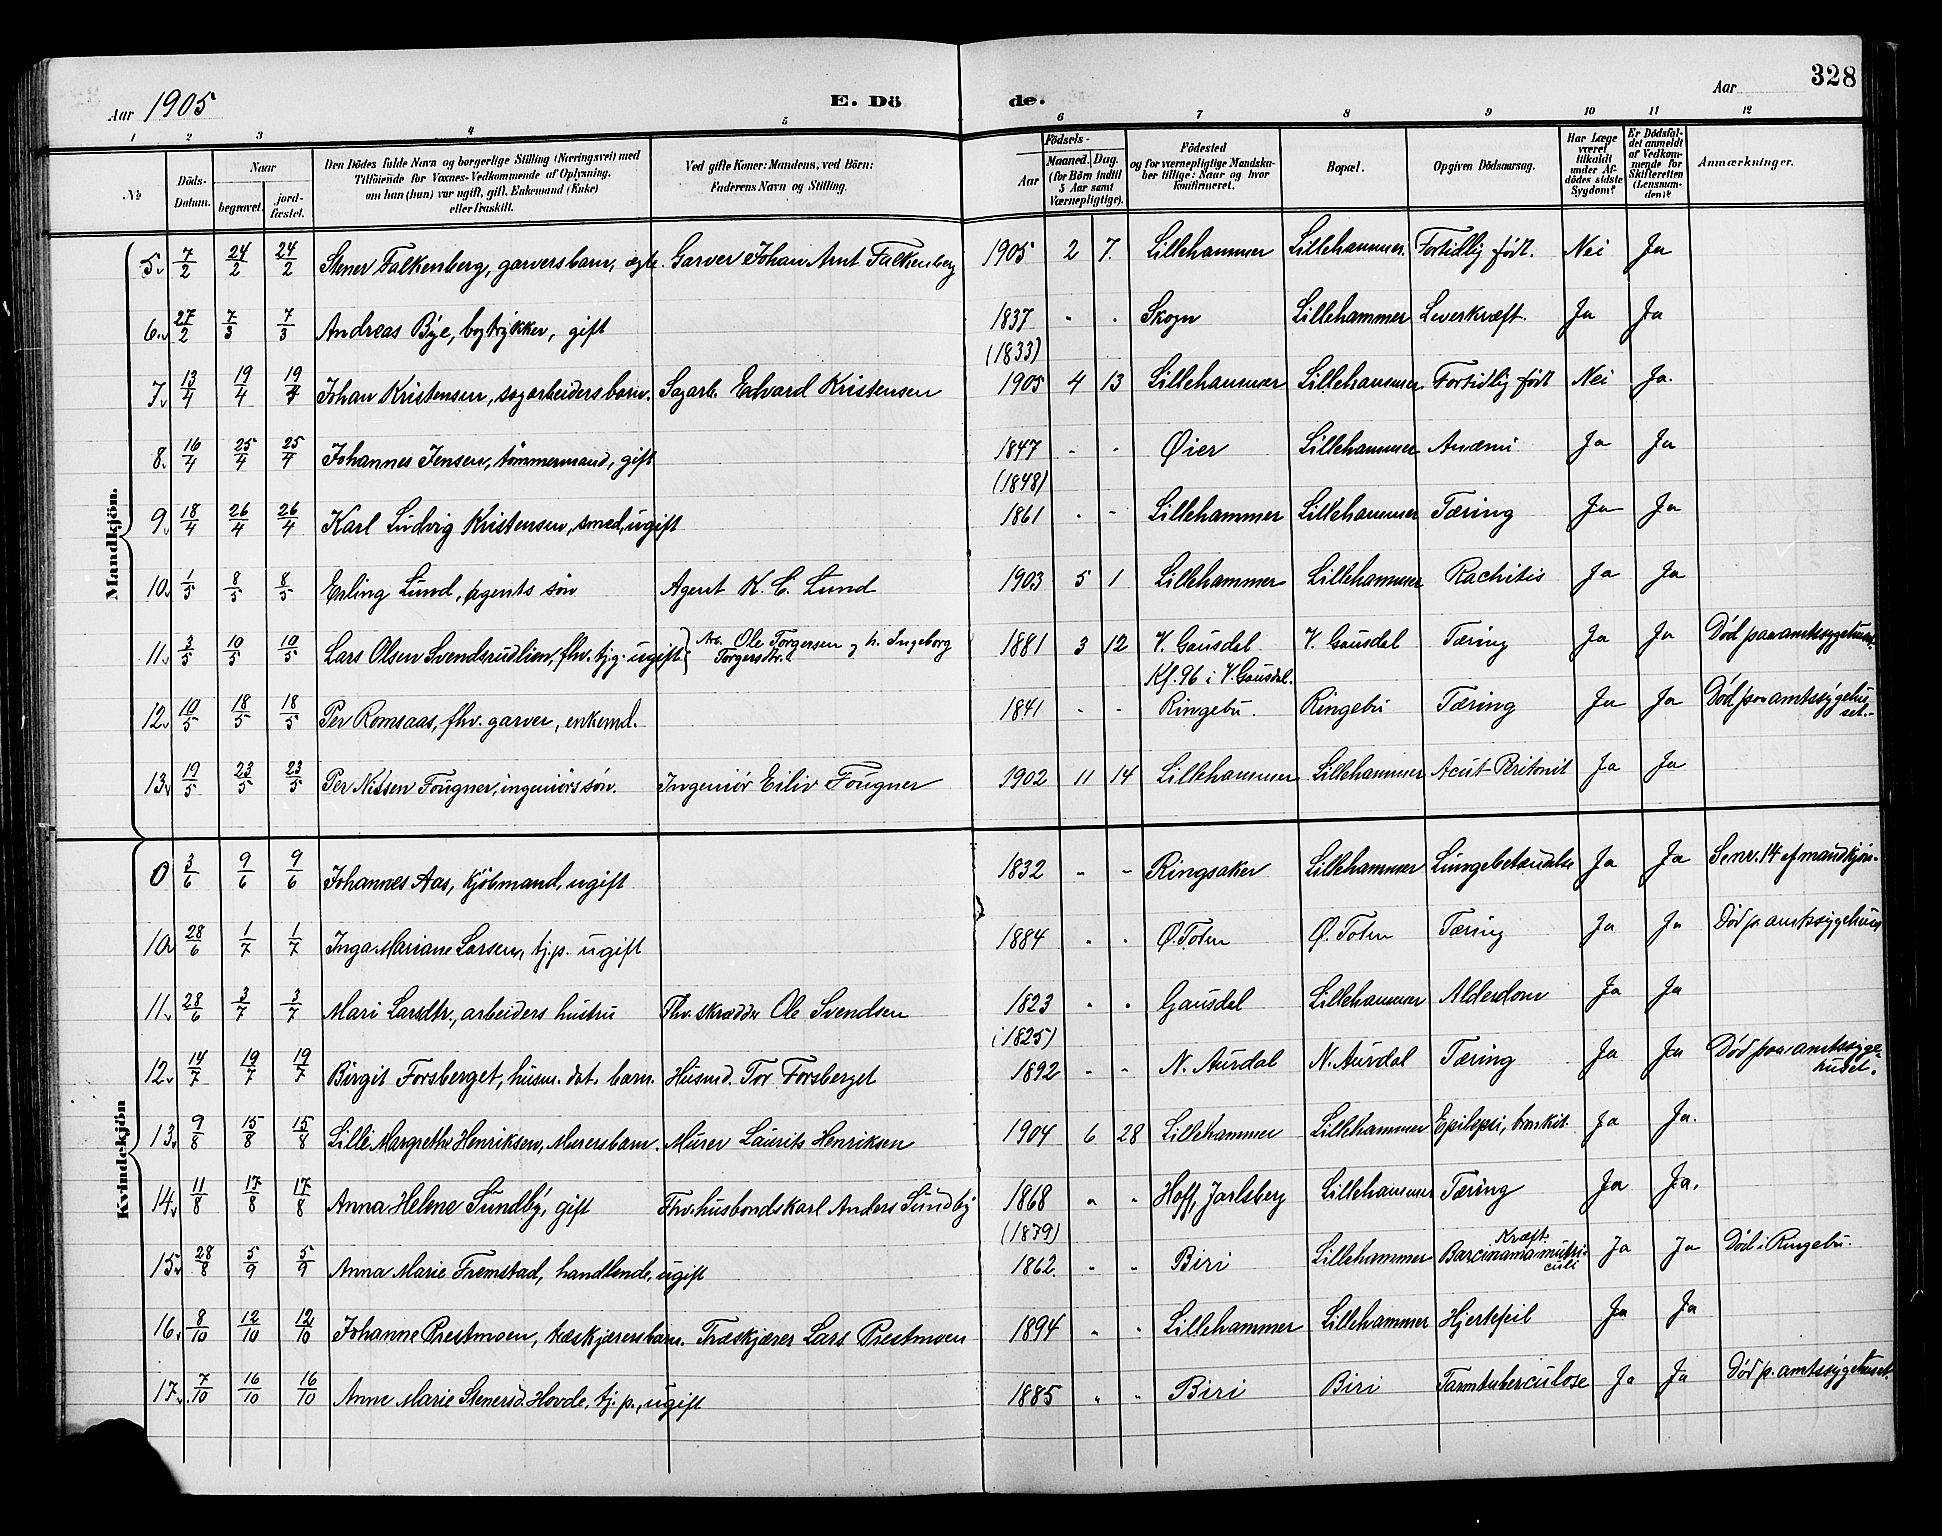 Aar 1905
E. Dö
de.
Aar
328
1 2 3 4 5 6 7 8 9 10 11 12
No
Döds-Datum.
Naar
begravet.
jord-fæstet.
Den Dödes fulde Navn og borgerlige Stilling (Næringsvei) med
Tilföiende for Voxnes-Vedkommende af Oplysning,
om han (hun) var ugift, gift, Enkemand (Enke)
eller fraskilt.
Ved gifte Koner: Mandens, ved Börn:
Faderens Navn og Stilling.
Födsels-
Aar
Maaned. Dag.
(for Börn indtil
5 Aar samt
Værnepligtige).
Födested
og for værnepligtige Mandska-
ber tillige: Naar og hvor
konfirmeret.
Bopæl.
Opgiven Dödsaarsag.
Har Læge
været
tilkaldt
under Af-
dödes sidste
Sygdom?
Er Dödsfal-
det anmeldt
af Vedkom-
mende for
Skifteretten
(Lensman-
den)?
Anmærkninger.
Mandkjön.
5 7/2 24/2 24/2 Stener Falkenberg, garversbarn, ægte. Garver Johan Arnt Falkenberg 1905 2 7. Lillehammer Lillehammer. Fortidlig født. Nei Ja
6 27/2 7/3 7/3 Andreas Bye, bogtrykker, gift 1837 " " Skogn Lillehammer Leverkræft. Ja Ja
(1833)
7 13/4 19/4 19/4 Johan Kristensen, sagarbeidersbarn. Sagarb. Edvard Kristensen 1905 4 13 Lillehammer Lillehammer Fortidlig født Nei Ja.
8 16/4 25/4 25/4 Johannes Jensen, tømmermand, gift 1847 " " Øier Lillehammer Anæmi Ja Ja
(1848)
9 18/4 26/4 26/4 Karl Ludvig Kristensen, smed, ugift 1861 " " Lillehammer Lillehammer Tæring Ja Ja
10 1/5 8/5 8/5 Erling Lund, agents søn Agent K. C. Lund 1903 5 1 Lillehammer Lillehammer Rachitis Ja Ja
11 3/5 10/5 10/5 Lars Olsen Svendsrudlien, fhv. tj.g. ugift Arb. Ole Torgersen og h. Ingeborg 1881 3 12 V. Gausdal V. Gausdal Tæring Ja Ja Død paa amtssygehuset.
Torgersdtr.
Kf. 96 i V. Gausdal.
12 10/5 18/5 18/5 Per Romsaas, fhv. garver, enkemd. 1841 " " Ringebu. Ringebu Tæring Ja Ja Død paa amtssygehu-
set.
13 19/5 23/5 23/5 Per Nilssen Fougner, ingeniørs søn. Ingeniør Eiliv Fougner 1902 11 14 Lillehammer Lillehammer Acut Peritonit Ja Ja
Kvindekjön
0 3/6 9/6 9/6 Johannes Aas, kjøbmand, ugift 1832 " " Ringsaker Lillehammer Lungebetændelse Ja Ja Se nr. 14 af mandkjøn.
10 28/6 1/7 1/7 Inga Mariane Larsen, tj.p. ugift 1884 " " Ø. Toten Ø. Toten Tæring Ja Ja Død p. amtssygehuset
11 28/6 3/7 3/7 Mari Larsdtr., arbeiders hustru Fhv. skrædder Ole Svendsen 1823 " " Gausdal Lillehammer Alderdom Ja Ja
(1825)
12 14/7 19/7 19/7 Birgit Forsberget, husm. dat. barn. Husmd. Tor Forsberget 1892 " " N. Aurdal N. Aurdal Tæring Ja Ja Død paa amtssyge-
huset.
13 9/8 15/8 15/8 Lilli Margrethe Henriksen, Murersbarn. Murer Laurits Henriksen 1904 6 28 Lillehammer Lillehammer Epilepsi, bronkit. Ja Ja.
14 11/8 17/8 17/8 Anna Helene Sundby, gift Fhv. husbondskarl Anders Sundby 1868 " " Hoff, Jarlsberg Lillehammer Tæring Ja Ja.
(1879)
Kræft.
15 28/8 5/9 5/9 Anna Marie Fremstad, handlende, ugift 1862. " " Biri Lillehammer Ja Ja Død i Ringebu.
16 8/10 12/10 12/10 Johanne Prestmoen, træskjærersbarn. Træskjærer Lars Prestmoen 1894 " " Lillehammer Lillehammer Hjertefeil Ja Ja
17 7/10 16/10 16/10 Anne Marie Stenersd. Hovde, tj. p., ugift 1885 " " Biri Biri Tarmtuberculose Ja Ja Død p. amtssygehuset.